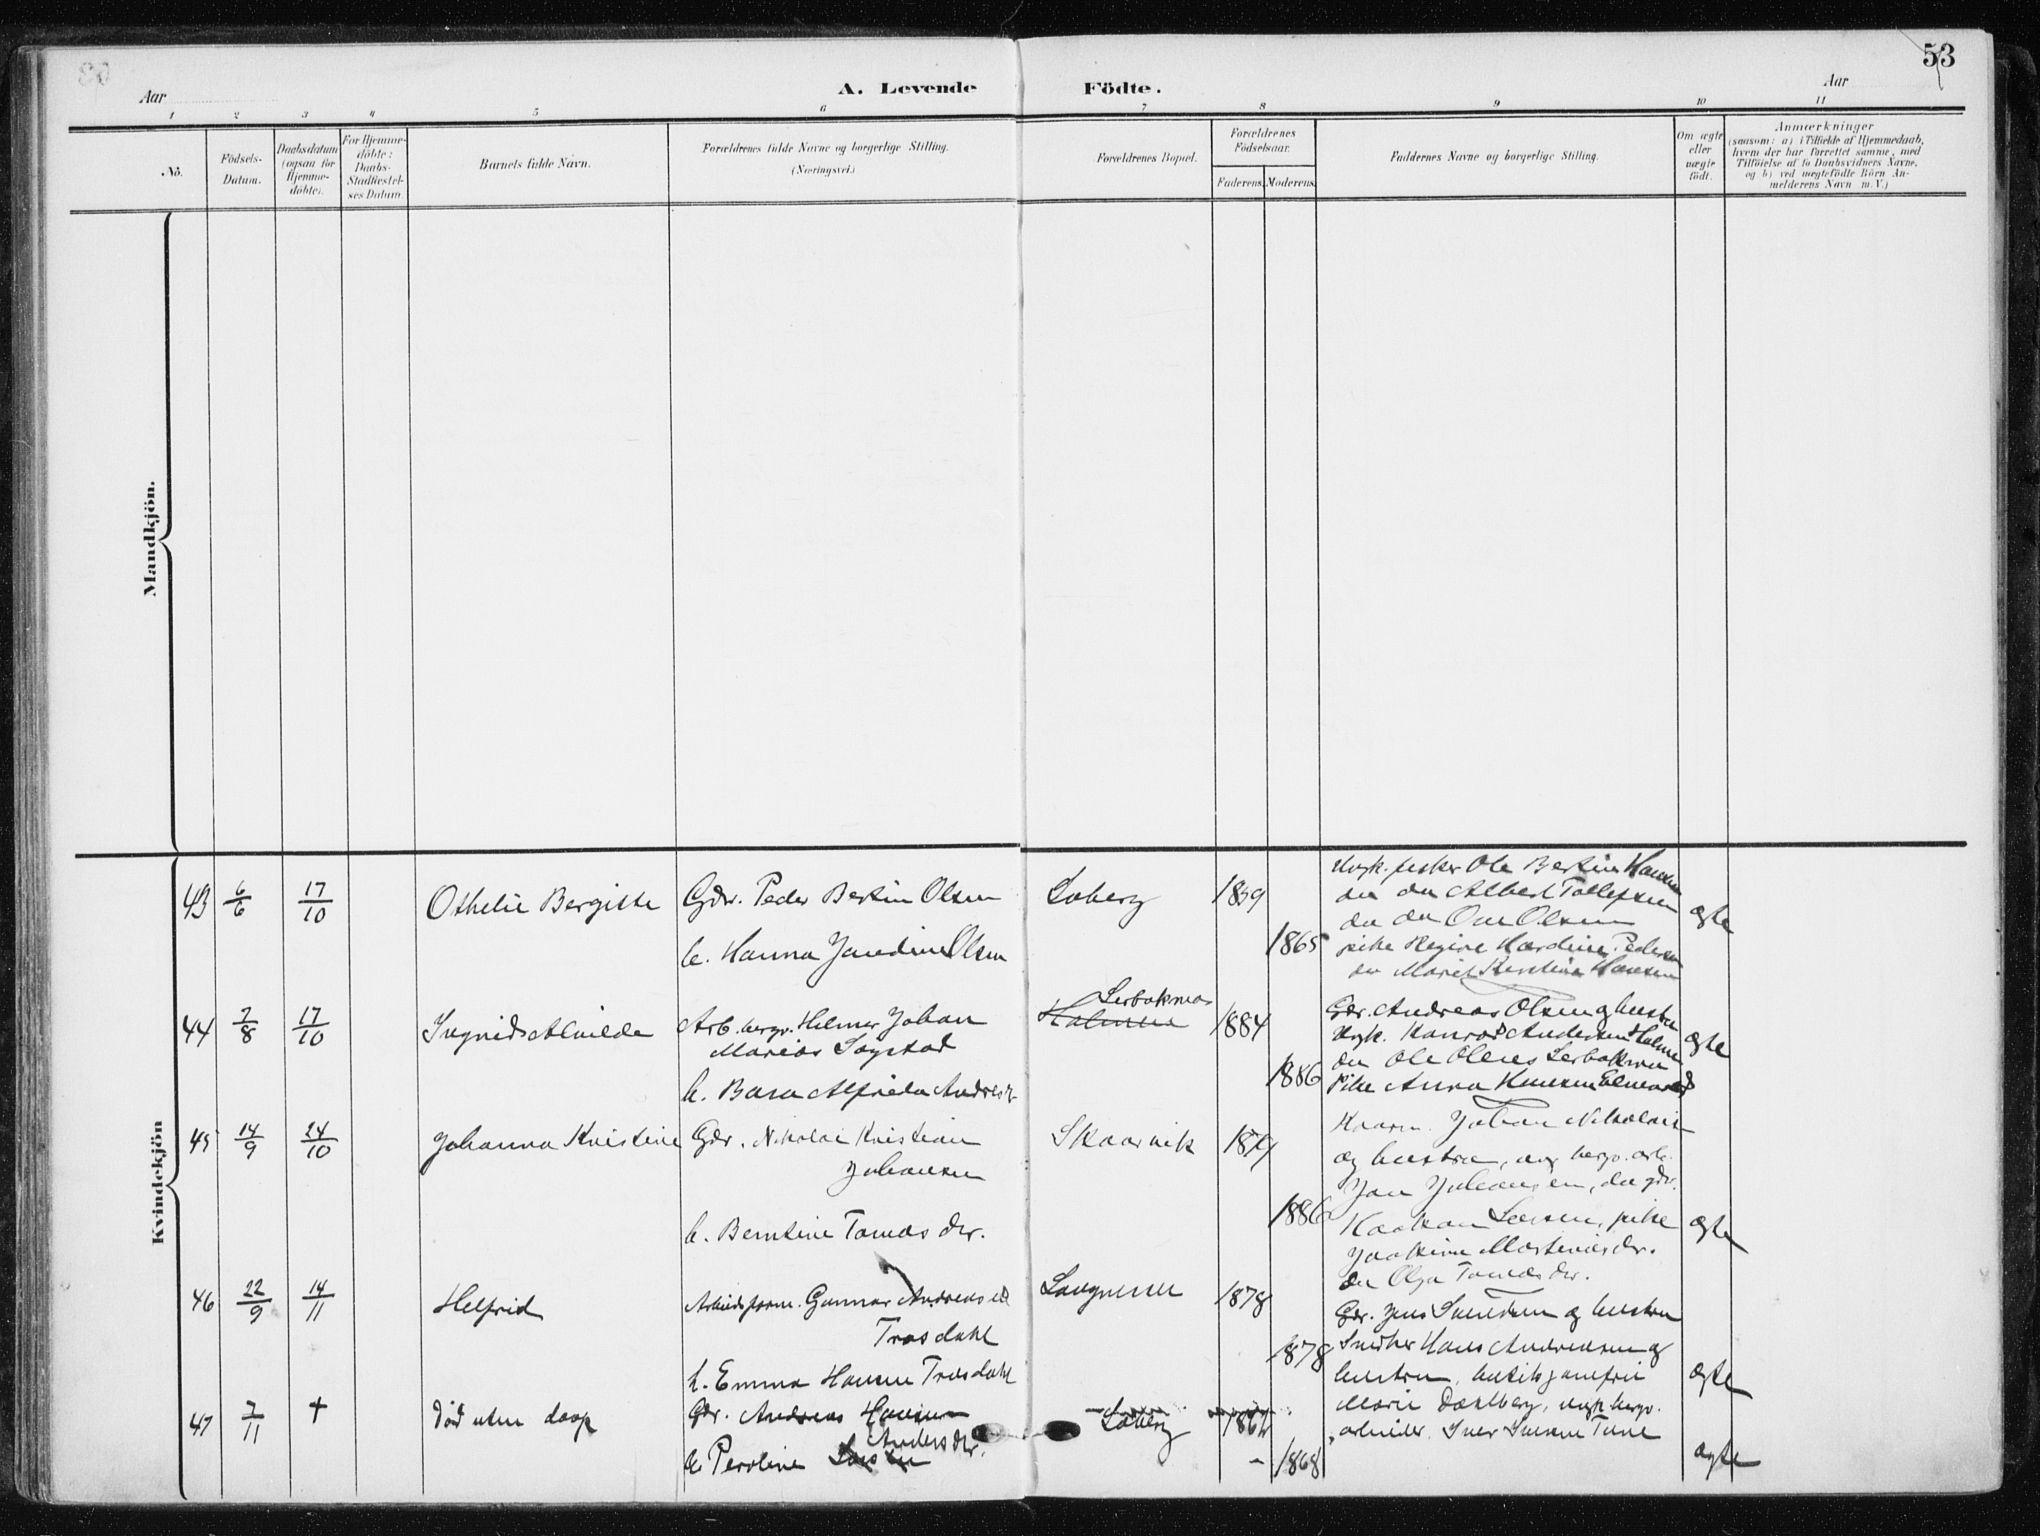 53
Aar
A. Levende Födte.
Aar
1 2 3 4 5 6 7 8 9 10 11
No.
Födsels-Datum.
Daabsdatum (ogsaa for Hjemme-döbte).
For Hjemme-döbte: Daabs-Stadfæstel-ses Datum.
Barnets fulde Navn.
Forældrenes fulde Navne og borgerlige Stilling. (Næringsvei.)
Forældrenes Bopæl.
Forældrenes Födselsaar.
Faderens. Moderens.
Faddernes Navne og borgerlige Stilling.
Om ægte eller uægte födt.
Anmærkninger
(saasom: a) i Tilfælde af Hjemmedaab, hvem der har forrettet samme, med Tilföielse af to Daabsvidners Navne, og b) ved uægtefödte Börn An-melderens Navn m. V.)
Mandkjön.
Kvindekjön
43 6/6 17/10 Othelie Bergitte Gdr. Peder Bertin Olsen Loberg 1859
h. Hanna Jandine Olsen 1865
Ungk. fisker Ole Bertin Hansen
do do Albert Tollefsen
do do Ove Olsen
pike Regine Hardine Pedersen
do Marie Kerstine Hansen
ægte
44 7/8 17/10 Ingrid Alvilde Arb. bergv. Hilmer Johan
Marius Sagstad
Lerbaknes
1884
h. Bara Alfrida Andreasdr 1886
Gdr. Andreas Olsen og hustru
Ungk. Konrad Andersen Holmen
do Ole Olsen Lerbaknes
Pike Anna Knusen
ægte
45 14/9 24/10 Johanna Kristine Gdr. Nikolai Kristian
Johansen
Skaarvik 1879
h. Berntine Tomasdr. 1886
Kaarm. Johan Nikolaisen
og hustru, ung. bergv. arb.
Jon Johansen, do gdr.
Haakon Larsen, pike
Joakime Marteniusdr.
do Olga Tomasdr.
ægte
46 22/9 14/11 Helfrid Arbeidsform. Gunnar Andreas
Trosdahl
Langnesset 1878
h. Emma Hansen Trosdahl 1878
Gdr. Jens Svendsen og hustru
Snedker Hans Andreasen og
hustru,
Marie Dahlberg, ungk. bergv.
arbeider. Iver Iversen
ægte
47 7/11 + død uten daap Gdr. Andreas Hansen Loberg 1864
h. Peroline Andersdr. 1868
ægte